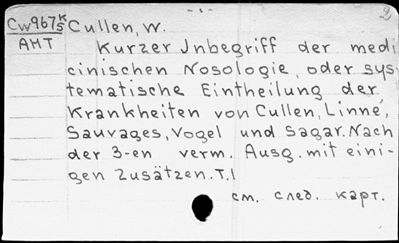 Cw967 K/S Cullen, W.
АНТ Kurzer Jnbegriff der medi
cinischen Nosologie, oder sys
tematische Eintheilung der
Krankheiten von Cullen, Linné,
Sauvages, Vogel und Sagar. Nach
der 3-en verm. Ausg. mit eini-
gen Zusätzen. T. I
см. след. карт.